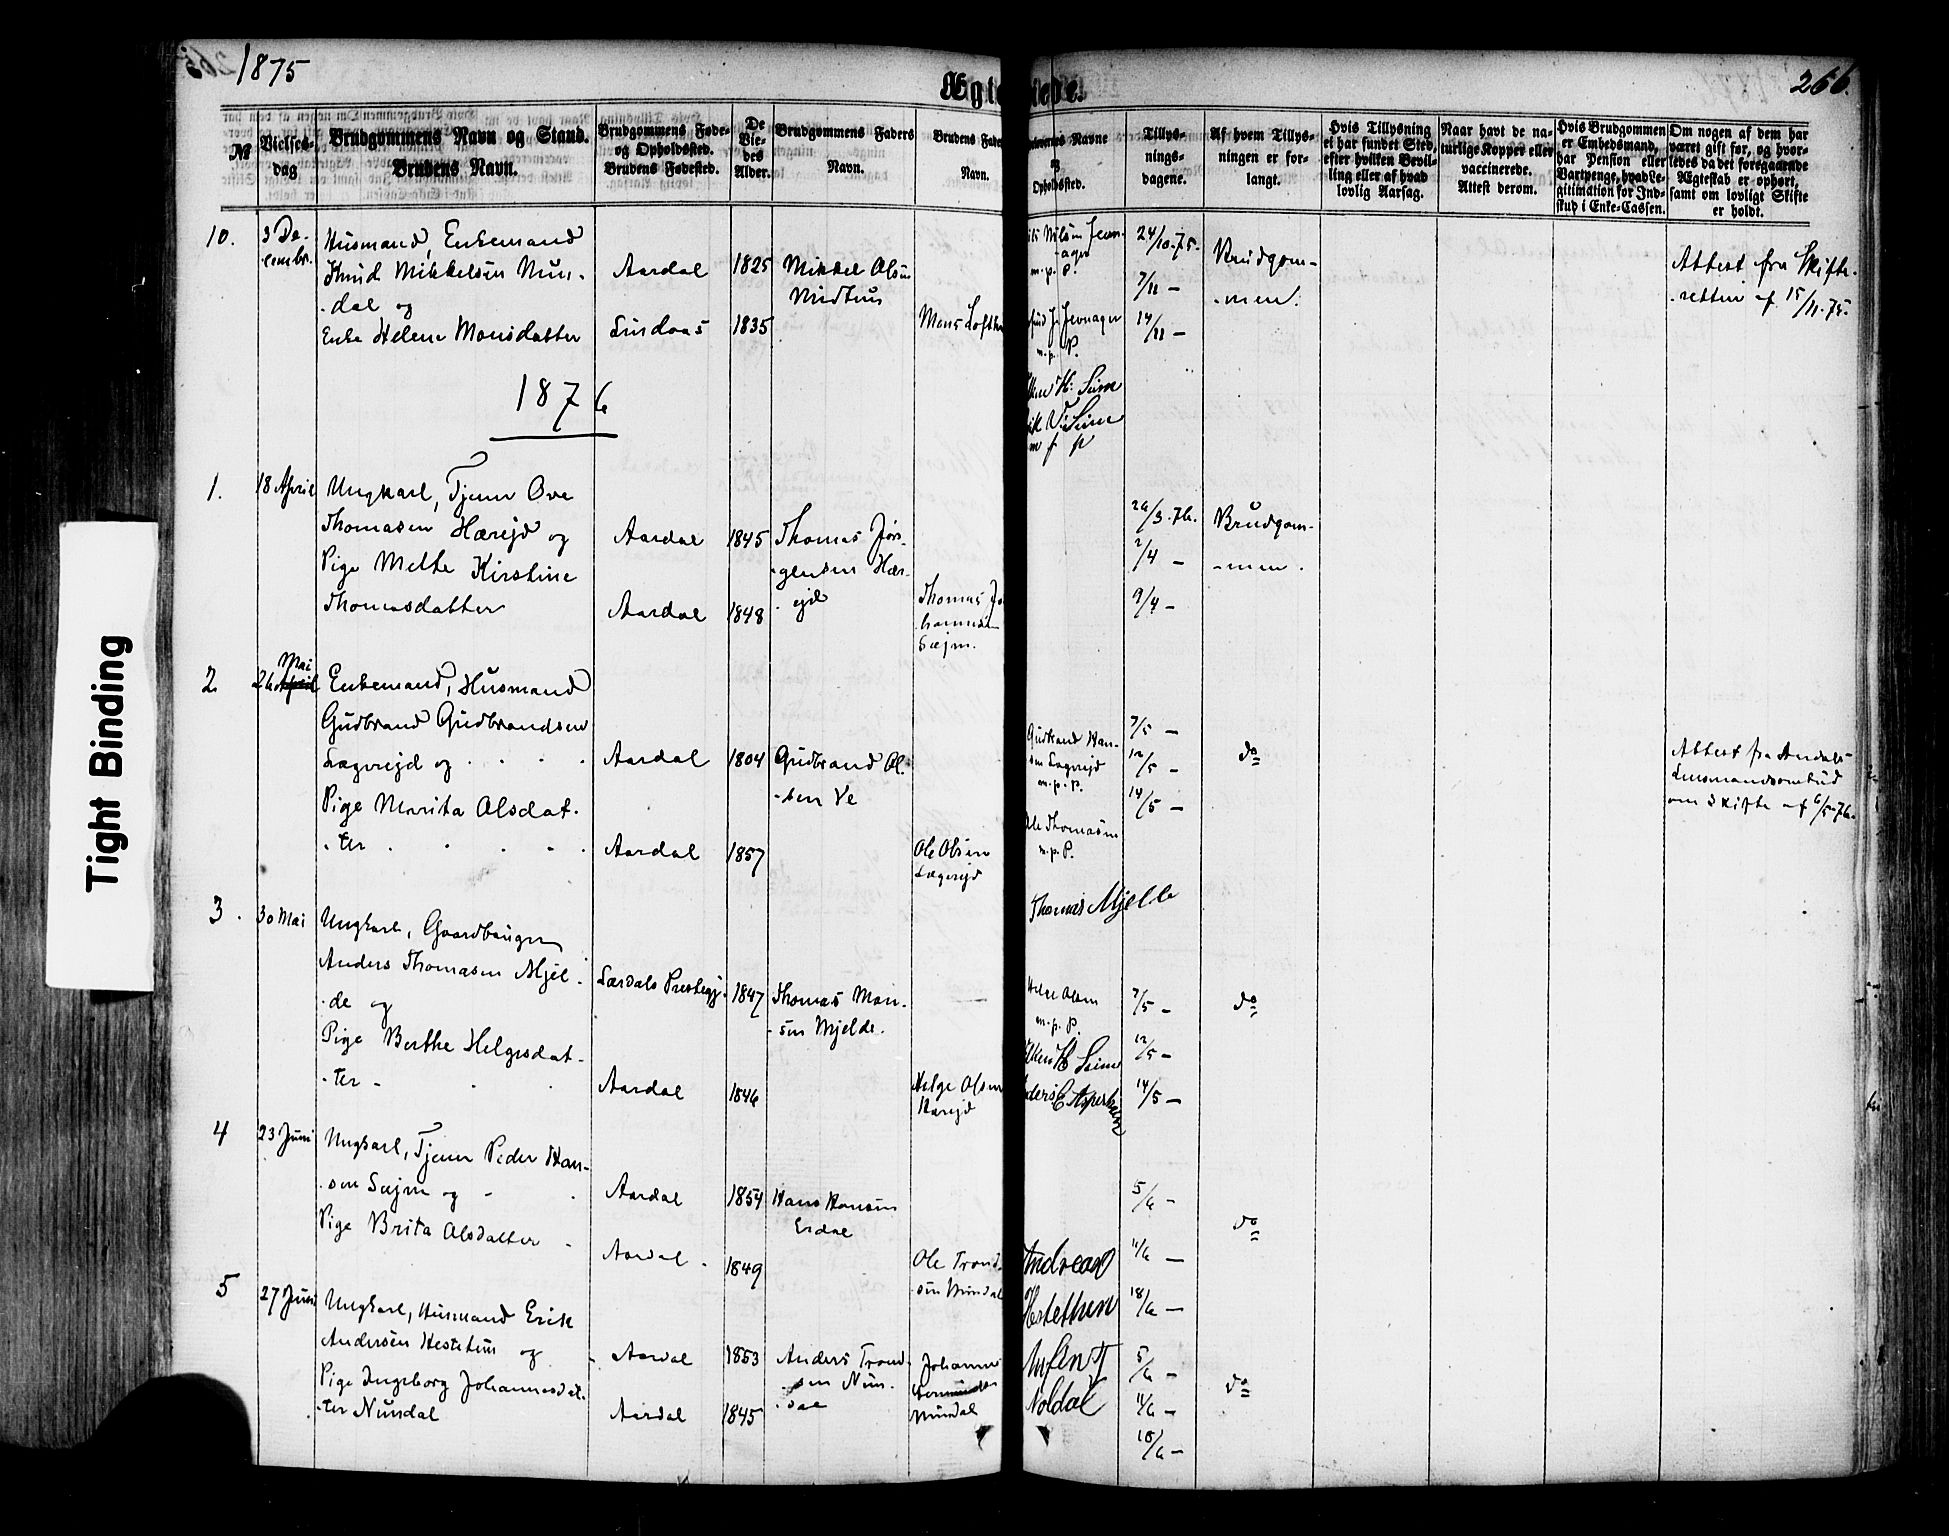 1875
Ægte
viede.
266.
№
Vielses-
dag
Brudgommens Navn og Stand.
Brudens Navn.
Brudgommens Føde-
og Opholdssted.
Brudens Fødested.
De
Vie-
des
Alder.
Brudgommens Faders
Navn.
Brudens Fader
Navn.
Navne
og
Opholdssted.
Tillys-
nings-
dagene.
Af hvem Tillys-
ningen er for-
langt.
Hvis Tillysning
ei har fundet Sted,
efter hvilken Bevil-
ling eller af hvad
lovlig Aarsag.
Naar havt de na-
turlige Kopper eller
vaccinerede.
Attest derom.
Hvis Brudgommen
er Embedsmand,
har Pension eller
Vartpenge, hvad Le-
gitimation for Ind-
skud i Enke-Cassen.
Om nogen af dem har
været gift før, og hvor-
ledes da det foregaaende
Ægteskab er ophørt,
samt om lovligt Skifte
er holdt.
10.
3 De-
cembr.
Husmand, Enkemand
Knud Mikkelsen Nun-
dal og
Enke Helene Monsdatter
Aardal
Lindaas
1825
1835
Mikkel Olsen
Midtun
Mons Lofth
Nilsen Jevn-
ager
m. p. P.
Jevnager
m. p. P.
H: Seim
Seim
m f p
24/10-75.
7/11 -
14/11 -
Brudgom-
men.
Attest fra Skifte-
retten af 15/11-75.
1876
1.
18 April
Ungkarl, Tjener Ove
Thomasen Hæreid og
Pige Mette Kirstine
Thomasdatter
Aardal
Aardal
1845
1848
Thomas Jør-
gensen Hær-
eid
Thomas Jo
hannesen
Sæjm.
26/3-76.
2/4 -
9/4 -
Brudgom-
men.
2
Mai
26 April
Enkemand, Husmand
Gudbrand Gudbrandsen
Lægreid og
Pige Marita Olsdat-
ter
Aardal
Aardal
1804
1857
Gudbrand Ol-
sen Ve
Ole Olsen
Lægreid
Gudbrand Han-
sen Lægreid
m. p. P.
Ole Thomasen
m. p. P.
7/5 -
12/5 -
14/5 -
do
Attest fra Aardals
Lensmandsombud
om Skifte af 6/5-76.
3.
30 Mai
Ungkarl, Gaardbruger
Anders Thomasen Mjel-
de og
Pige Berthe Helgesdat-
ter -
Lærdals Prestegj.
Aardal
1847
1846
Thomas Mon-
sen Mjelde.
Helge Olsen
Hæreid
Thomas Mjelde
Helge Olsen
m. p. P.
H Seim
7/5 -
12/5 -
14/5 -
do
4
23 Juni
Ungkarl, Tjener Peder Han-
sen Sæjm og -
Pige Brita Olsdatter -
Aardal
Aardal -
1854
1849
Hans Hansen
Erdal
Ole Trond-
sen Nundal
5/6 -
11/6 -
18/6 -
do
5
27 Juni
Ungkarl, Husmand Erik
Andersen Hestetun og
Pige Ingeborg Johannesdat-
ter Nundal
Aardal
Aardal
1853
1845
Anders Trond-
sen Nun-
dal
Johannes
Nundal
Andreas
Hestethun
5/6 -
11/6 -
18/6 -
do
Tight Binding